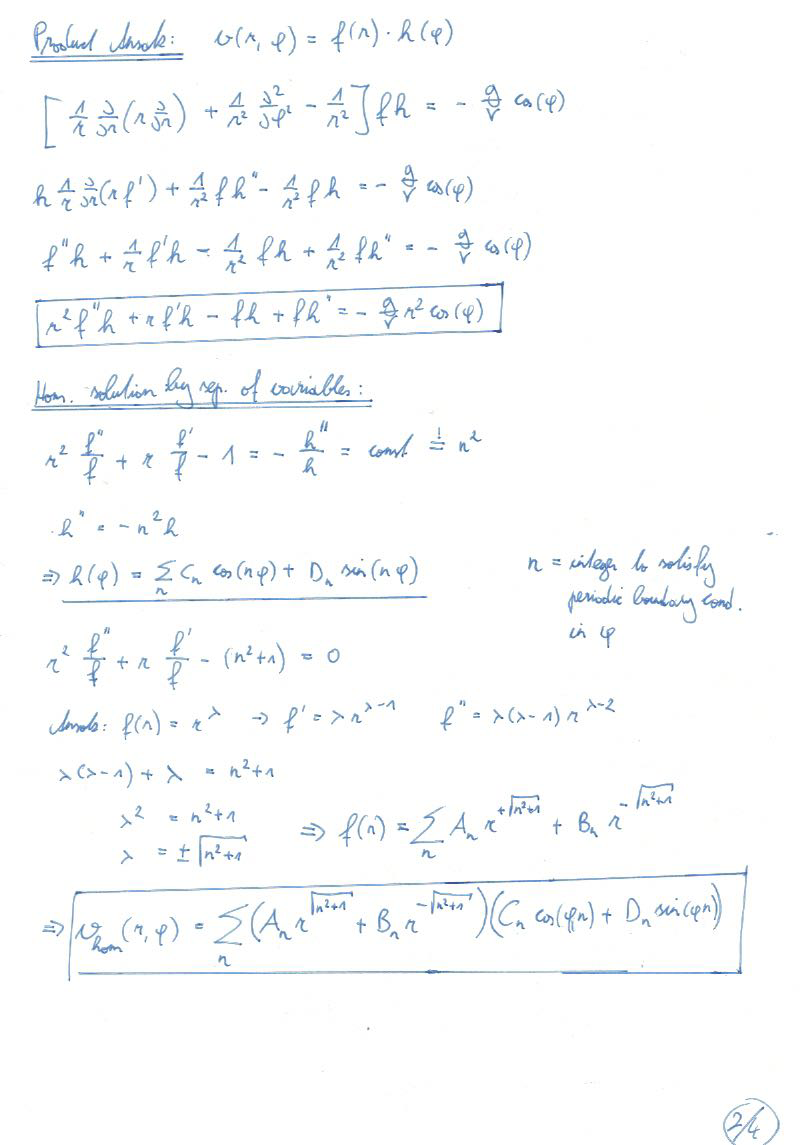 Product Ansatz: v(r, φ) = f(r) · h(φ)
[1/r ∂/∂r (r ∂/∂r) + 1/r² ∂²/∂φ² - 1/r²] f h = - g/ν cos(φ)
h 1/r ∂/∂r (r f') + 1/r² f h'' - 1/r² f h = - g/ν cos(φ)
f'' h + 1/r f' h - 1/r² f h + 1/r² f h'' = - g/ν cos(φ)
r² f'' h + r f' h - f h + f h'' = - g/ν r² cos(φ)
Hom. solution by sep. of variables:
r² f''/f + r f'/f - 1 = - h''/h = const ≐! n²
h'' = - n² h
⇒ h(φ) = Σ_n C_n cos(nφ) + D_n sin(nφ)
n = integer to satisfy
periodic boundary cond.
in φ
r² f''/f + r f'/f - (n²+1) = 0
Ansatz: f(r) = r^λ → f' = λ r^(λ-1) f'' = λ(λ-1) r^(λ-2)
λ(λ-1) + λ = n²+1
λ² = n²+1
λ = ± √(n²+1) ⇒ f(r) = Σ_n A_n r^(+√(n²+1)) + B_n r^(-√(n²+1))
⇒ v_hom (r, φ) = Σ_n (A_n r^(√(n²+1)) + B_n r^(-√(n²+1))) (C_n cos(φn) + D_n sin(φn))
2/4